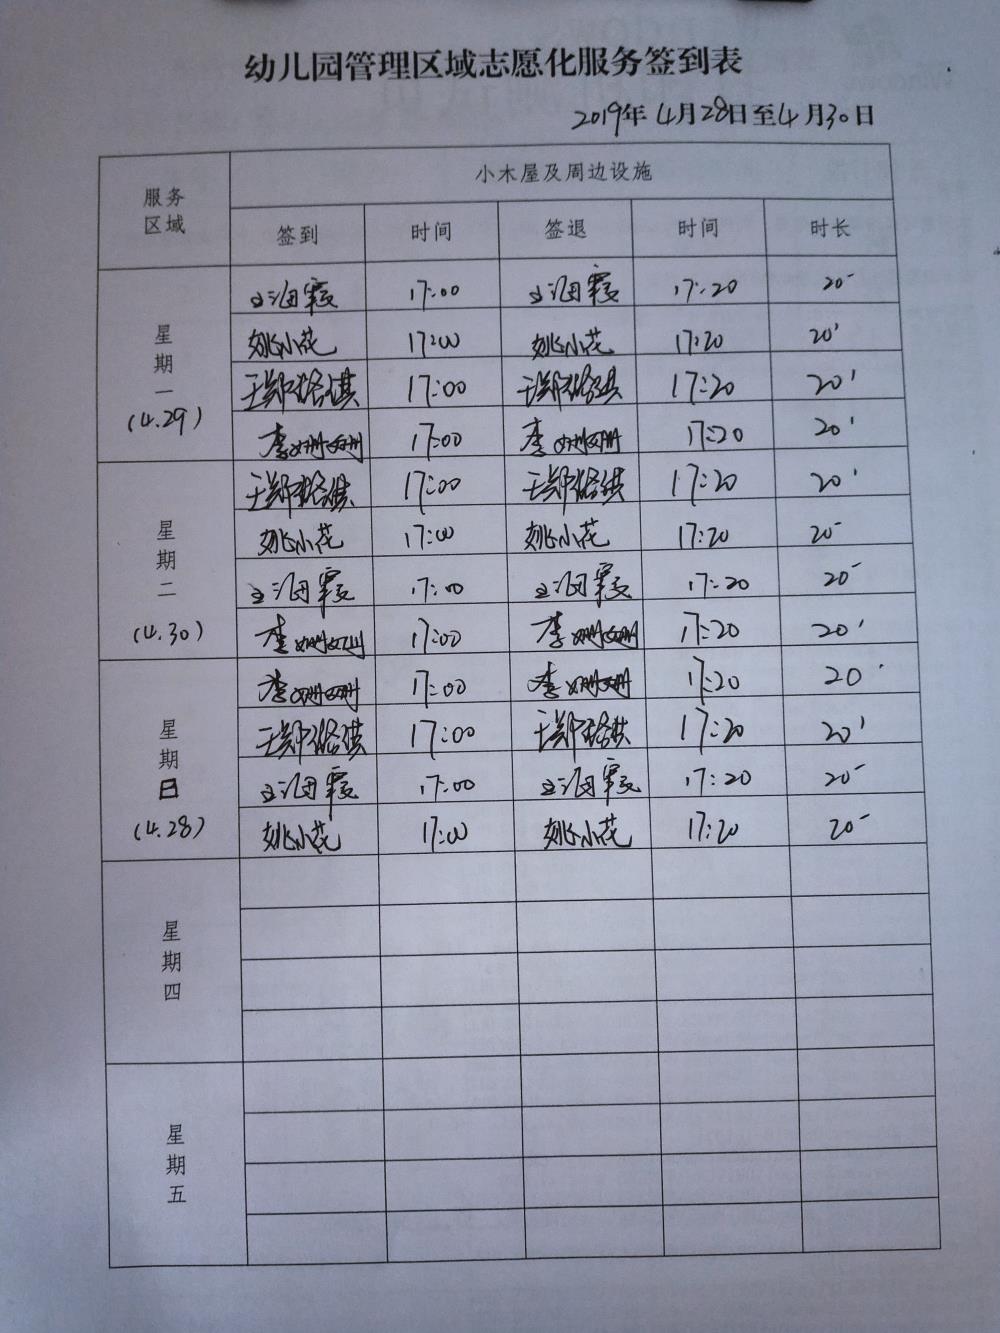 幼儿园管理区域志愿化服务签到表
2019年 4月28日至4月30日
服务区域 小木屋及周边设施
签到 时间 签退 时间 时长
星期一
(4.29)
17:00 17:20 20'
姚小花 17:00 姚小花 17:20 20'
17:00 17:20 20'
李姗姗 17:00 李姗姗 17:20 20'
星期二
(4.30)
17:00 17:20 20'
姚小花 17:00 姚小花 17:20 20'
17:00 17:20 20'
李姗姗 17:00 李姗姗 17:20 20'
星期日
(4.28)
李姗姗 17:00 李姗姗 17:20 20'
17:00 17:20 20'
17:00 17:20 20'
姚小花 17:00 姚小花 17:20 20'
星期四
星期五